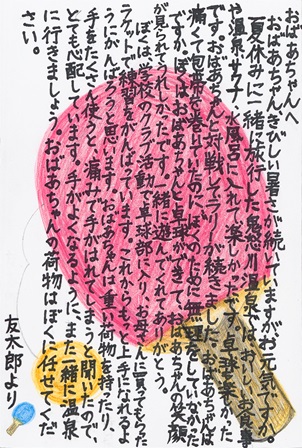 おばあちゃんへ
おばあちゃんきびしい暑さが続いていますがお元気ですか。
夏休みに一緒に旅行した鬼怒川温泉では、おいしいお食事
や温泉、サウナ、水風呂に入れて楽しかったです。卓球も楽しかった
です。おばあちゃんと対戦してラリーが続きました。おばあちゃんは手が
痛くて包帯を巻いていたのに、ぼくのために無理をしていなかった
ですか。ぼくは、おばあちゃんと卓球ができて、おばあちゃんの笑顔
が見られてうれしかったです。一緒に遊んでくれてありがとう。
ぼくは、学校のクラブ活動で卓球部に入り、お母さんに買ってもらった
ラケットで練習をがんばっています。これからもっと上手になれるよ
うにがんばろうと思います。おばあちゃんは、重い荷物を持ったり、
手をたくさん使うと、痛みで手がはれてしまうと聞いたので、
とても心配しています。手がよくなるように、また一緒に温泉
に行きましょう。おばあちゃんの荷物はぼくに任せてくだ
さい。
友太郎より